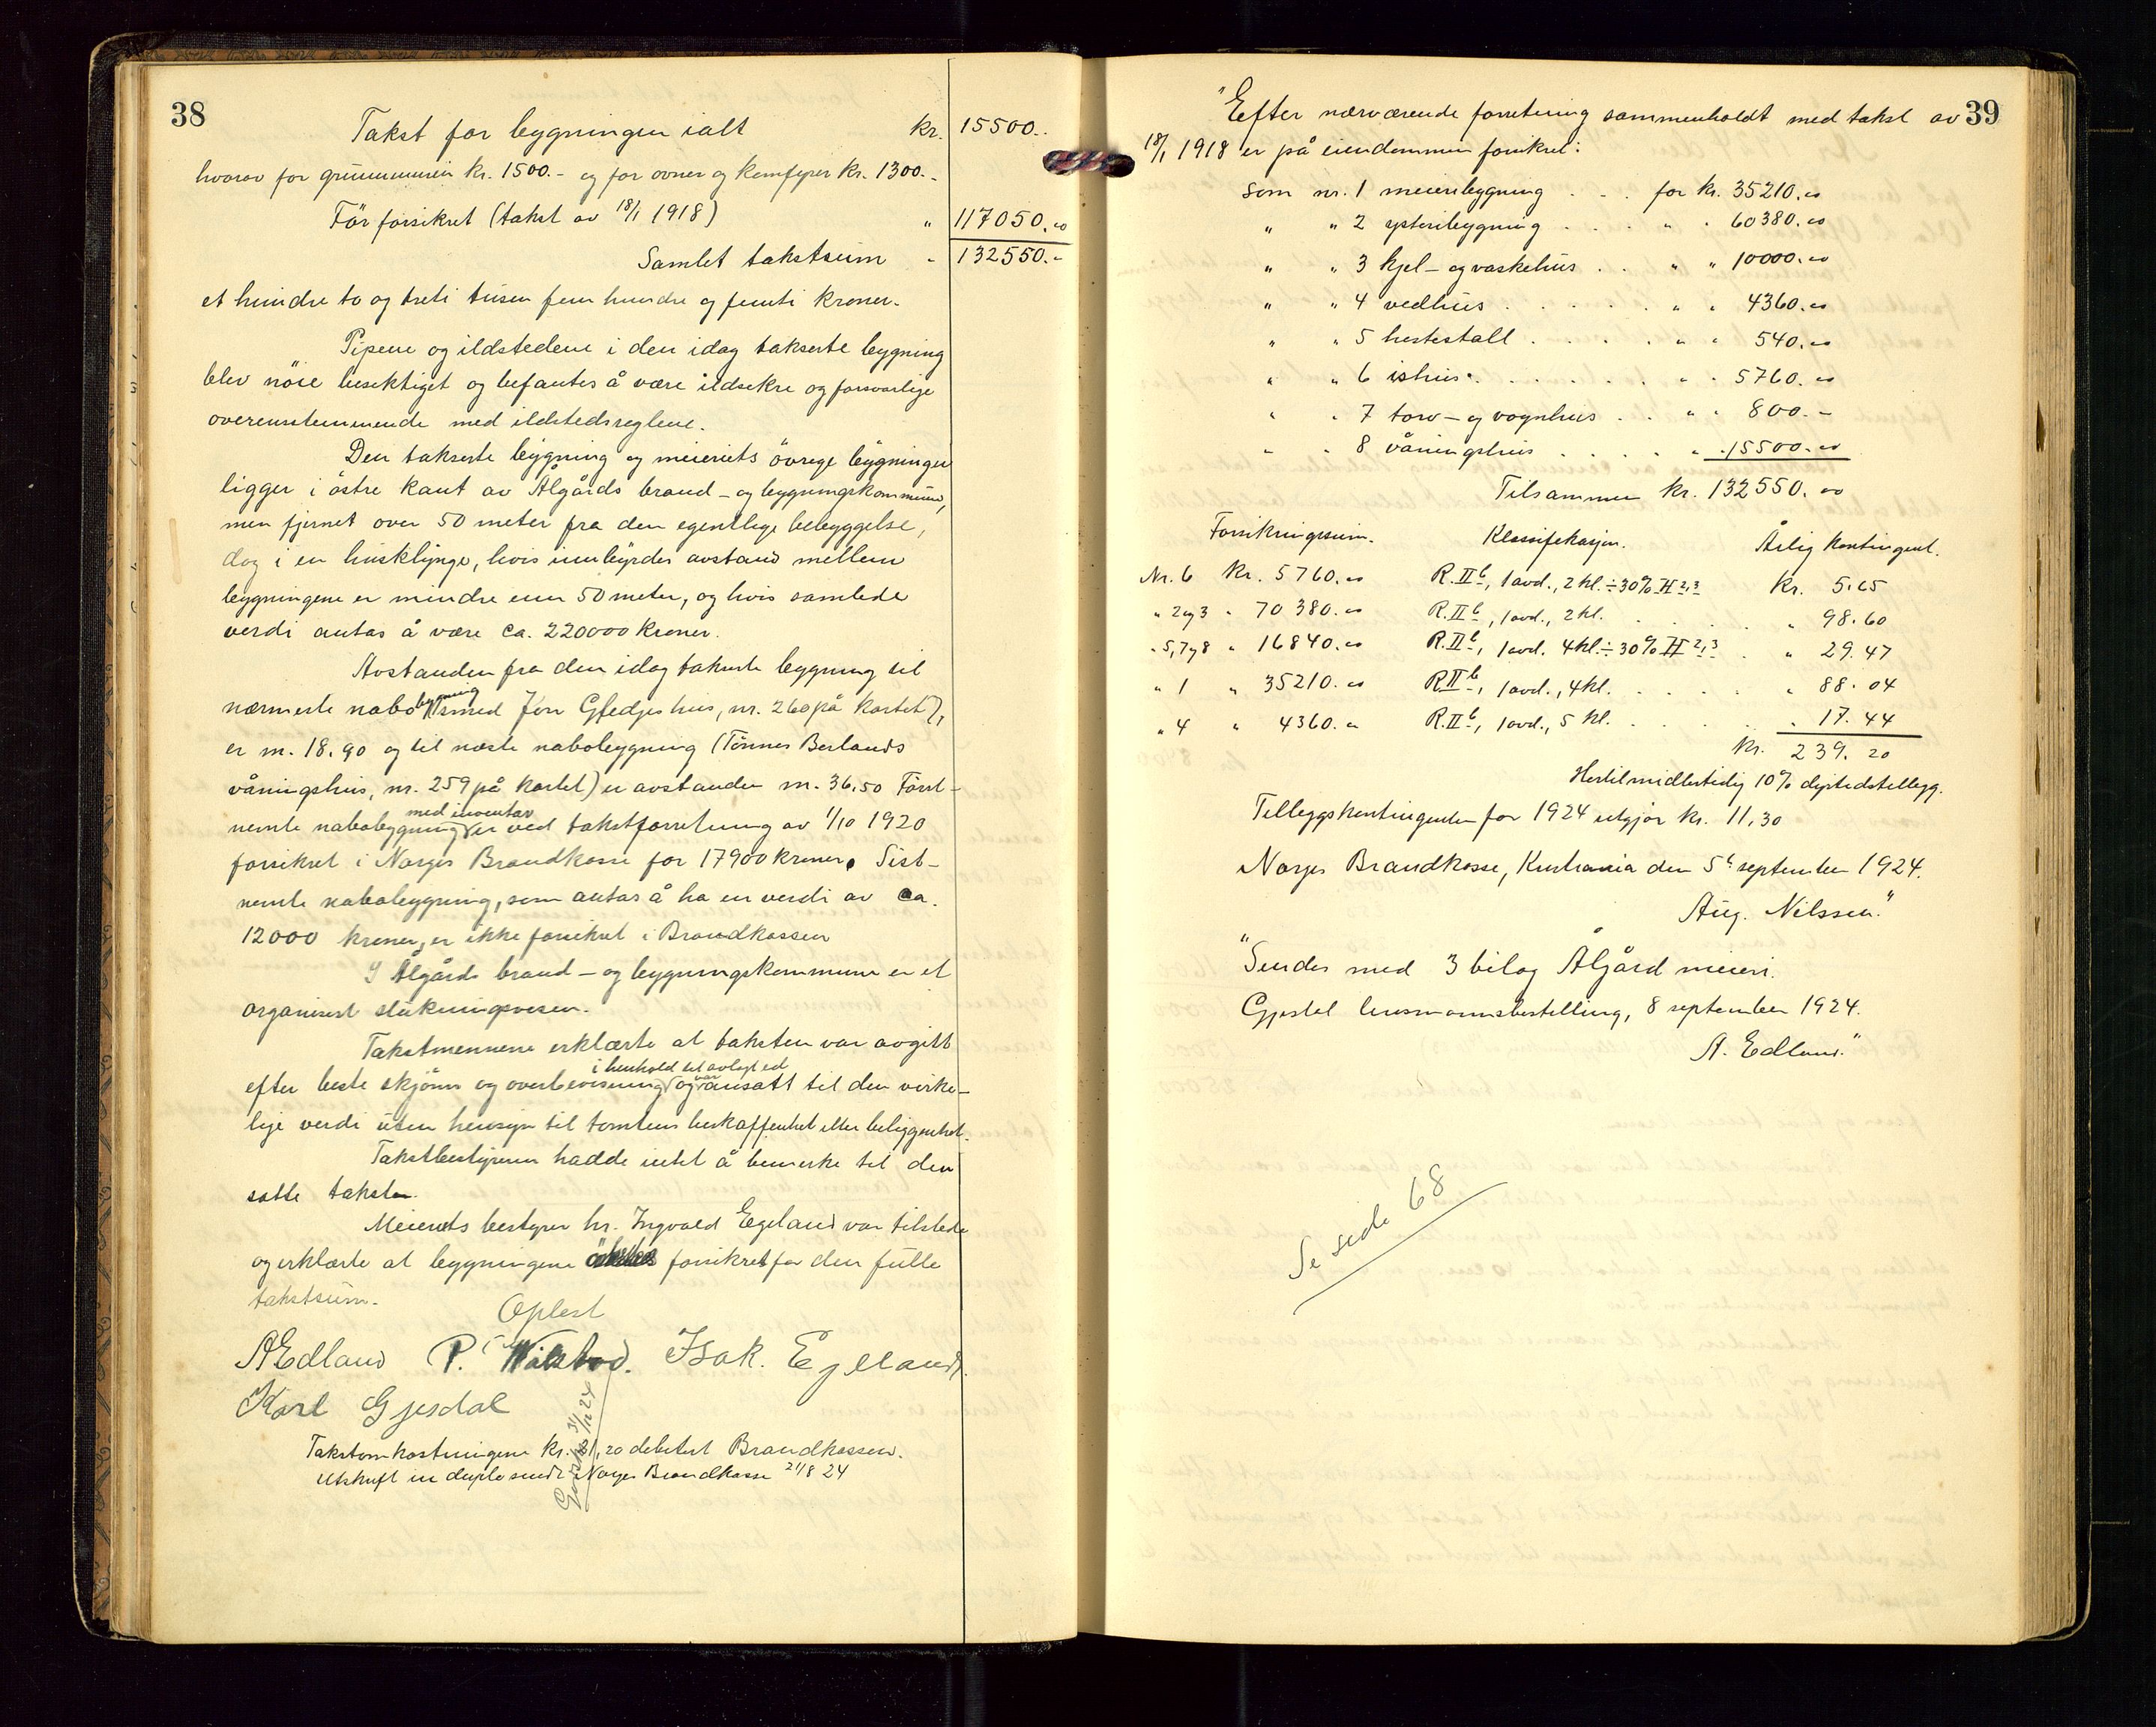 38
Takst for bygningen ialt kr. 15500.-
hvorav for grunnmuren kr. 1500.- og for ovner og komfyrer kr. 1300.-
Før forsikret (takst av 18/1 1918) " 117050.00
Samlet takstsum - 132550.-
et hundre to og treti tusen fem hundre og femti kroner.
Pipene og ildstedene i den idag takserte bygning
blev nöie besiktiget og befantes å være ildsikre og forsvarlige
overensstemmende med ildstedsreglene.
Den takserte bygning og meieriets övrige bygninger
ligger i östre kant av Ålgårds brand- og bygningskommune,
men fjernet over 50 meter fra den egentlige bebyggelse,
dog i en husklynge, hvis innbyrdes avstand mellem
bygningene er mindre enn 50 meter, og hvis samlede
verdi antas å være ca. 220000 kroner.
Avstanden fra den idag takserte bygning til
nærmeste nabobygning (smed Jon Gfedjes hus, nr. 260 på kartet),
er m. 18.90 og til næste nabobygning (Tönnes Berlands
våningshus, nr. 259 på kartet) er avstanden m. 36.50 Först-
nemte nabobygning med inventar er ved takstforretning av 1/10 1920
forsikret i Norges Brandkasse for 17900 kroner. Sist-
nemte nabobygning, som antas å ha en verdi av ca.
12000 kroner, er ikke forsikret i Brandkassen
I Ålgårds brand- og bygningskommune er et
organisert slukningsvesen.
Takstmennene erklærte at taksten var avgitt
efter beste skjönn og overbevisning i henhold til avlagt ed og var ansatt til den virke-
lige verdi uten hensyn til tomtens beskaffenhet eller beliggenhet.
Takstbestyreren hadde intet å bemerke til den
satte takst.
Meieriets bestyrer hr. Ingvald Egeland var tilstede
og erklærte at bygningene forsikret for den fulle
takstsum.
Oplest
A Edland P. Isak. Egeland.
Karl Gjesdal
Takstomkostningene kr. 20 debitert Brandkassen.
Utskrift in duplo sendt Norges Brandkasse 21/8 24
39
"Efter nærværende forretning sammenholdt med takst av
18/1 1918 er på eiendommen forsikret:
som nr. 1 meieribygning . . for kr. 35210.00
" " 2 ysteribygning . . . " " 60380.00
" " 3 kjel- og vaskehus . . " " 10000.00
" " 4 vedhus . . . . . " " 4360.00
" " 5 hestestall . . . . " " 540.00
" " 6 ishus . . . . . " " 5760.00
" " 7 torv- og vognhus . . " " 800.-
" " 8 våningshus . . . . " " 15500.00
Tilsammen kr. 132550.00
Forsikringssum. Klassifikasjon. Årlig kontingent.
Nr. 6 kr. 5760.00 R.IIb, 1 avd., 2 kl. ÷ 30% H 2,3 kr. 5.65
" 2 og 3 " 70380.00 R.IIb, 1 avd., 2 kl. . . . " 98.60
" 5, 7 og 8 " 16840.00 R.IIb, 1 avd. 4 kl. ÷ 30% H 2,3 . " 29.47
" 1 " 35210.00 R IIb, 1 avd., 4 kl. . . . " 88.04
" 4 " 4360.00 R.IIb, 1 avd., 5 kl. . . . " 17.44
kr. 239.20
Hertil midlertidig 10% dyrtidstillegg.
Tilleggskontingenten for 1924 utgjör kr. 11.30
Norges Brandkasse, Kristiania den 5te september 1924.
Aug. Nilssen."
"Sendes med 3 bilag Ålgård meieri.
Gjesdal lensmannsbestilling, 8 september 1924.
A. Edland."
Se side 68